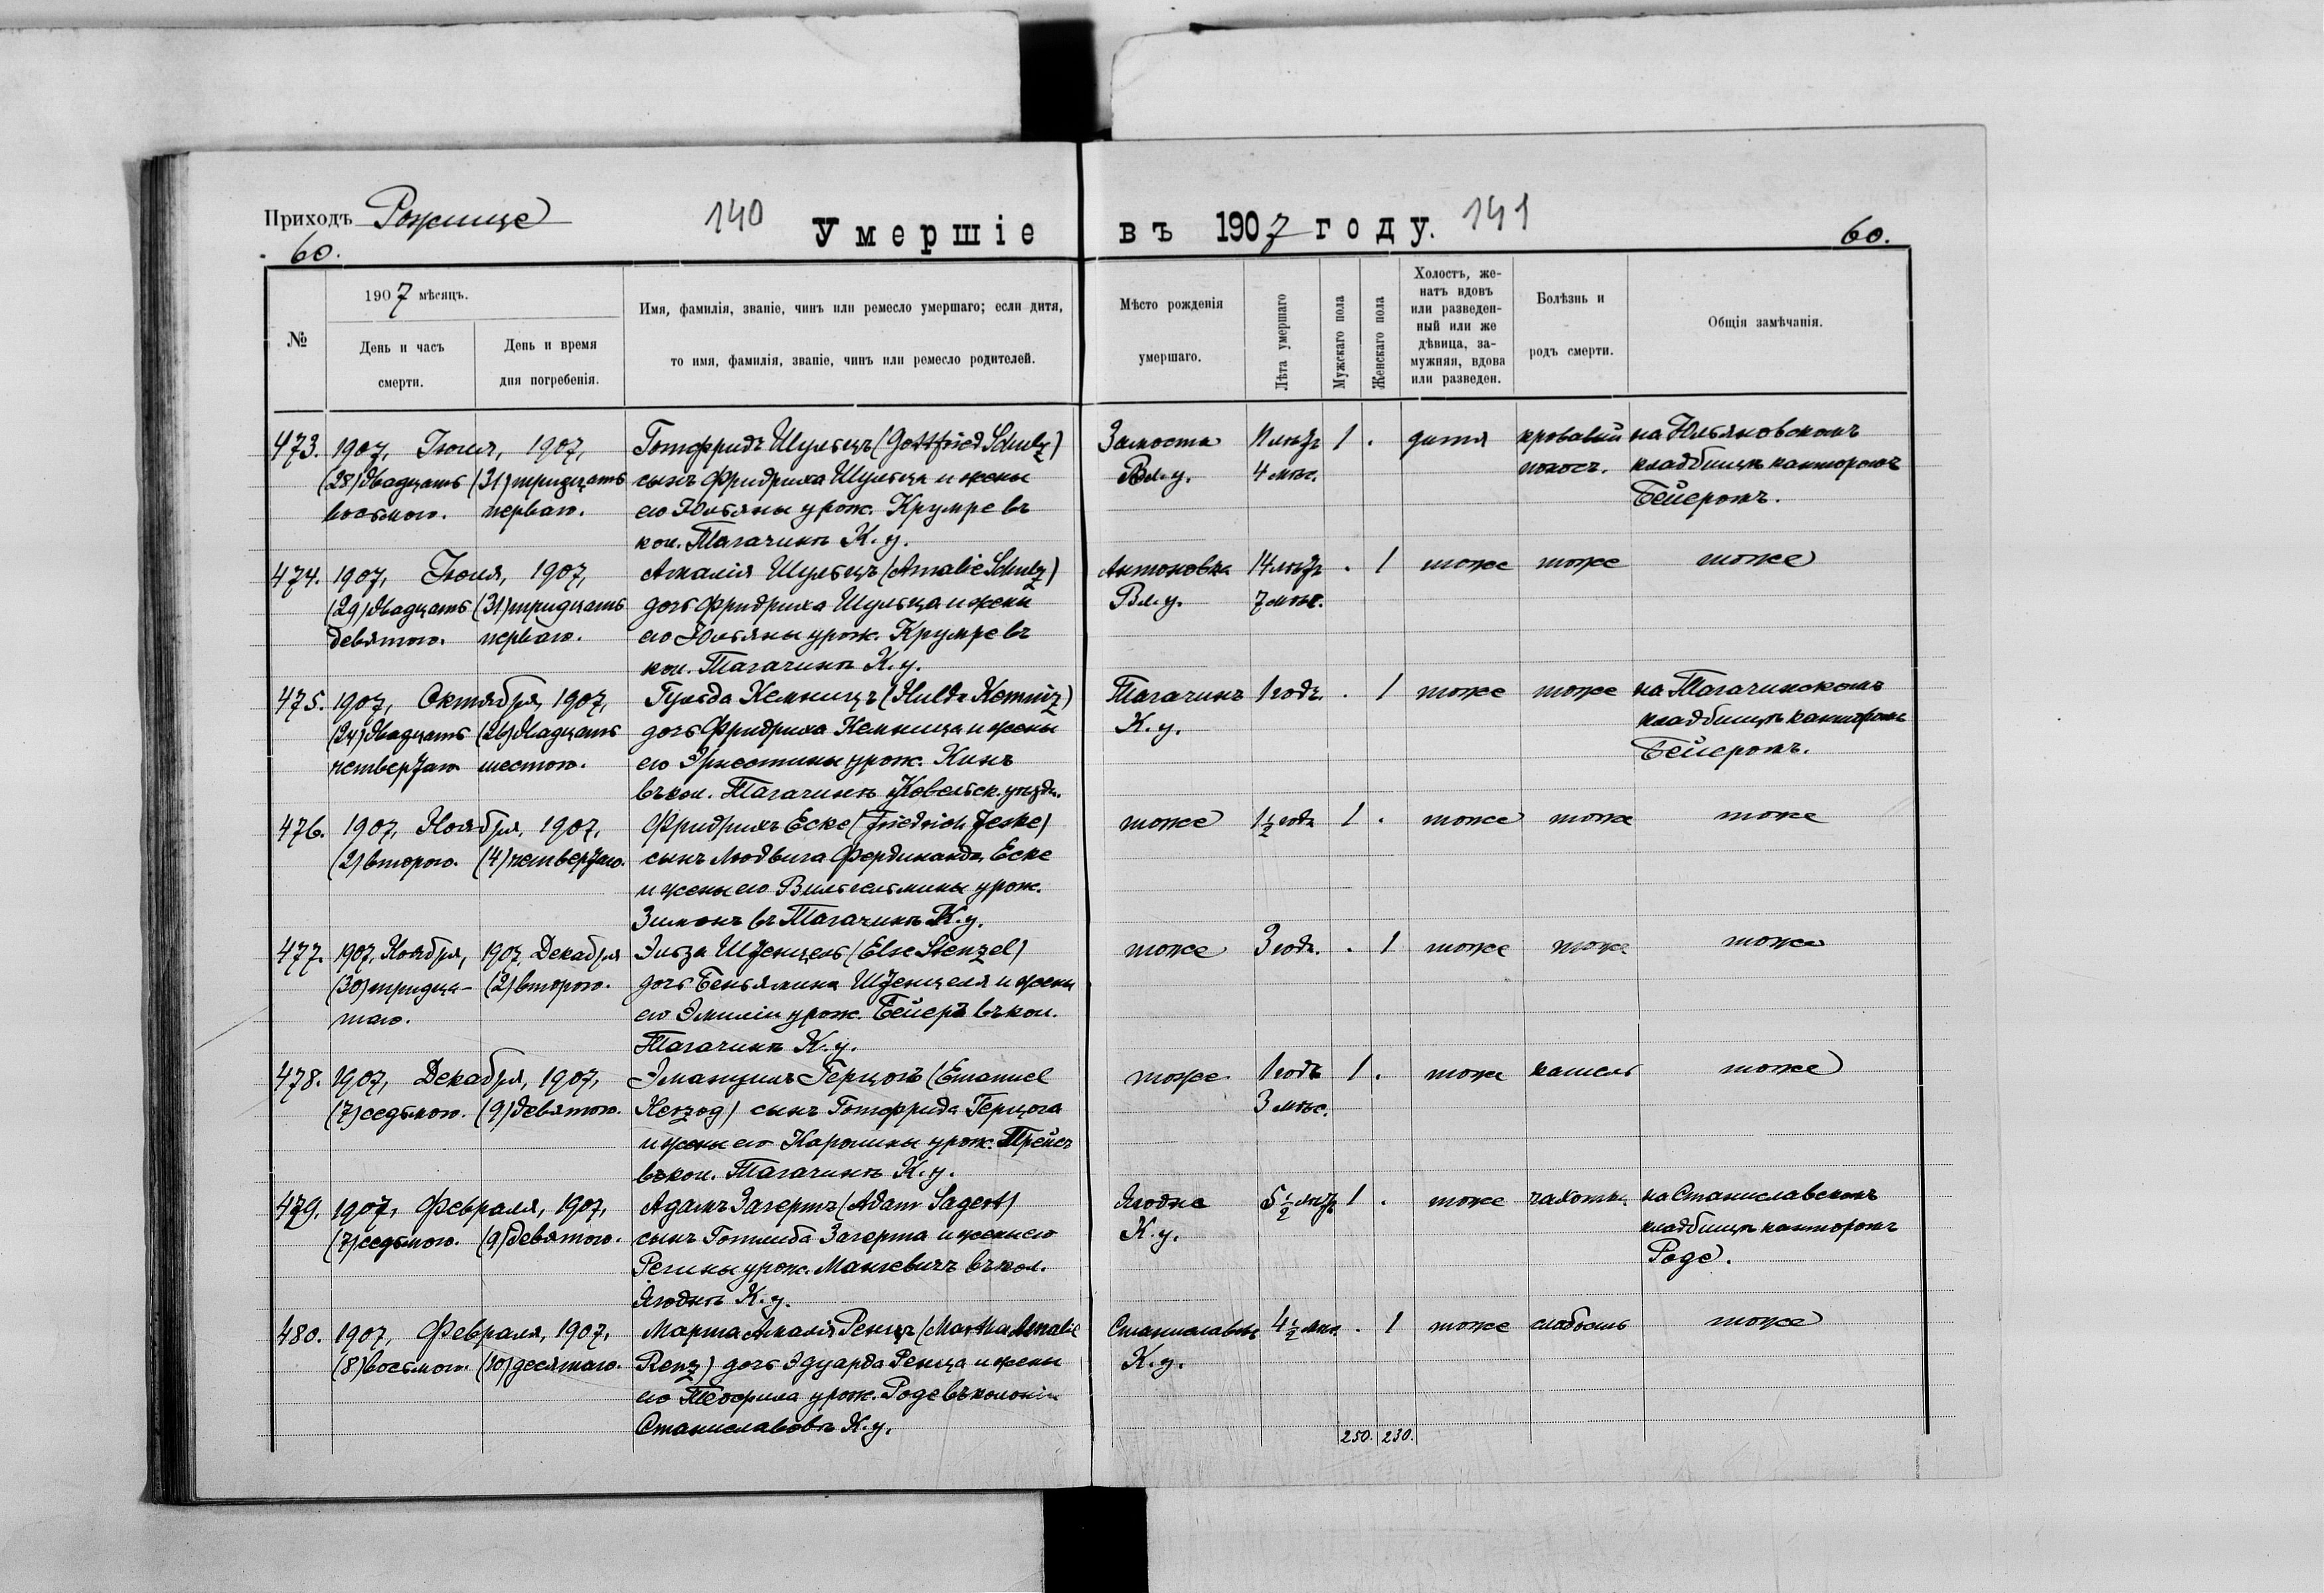 Приходъ Рожище
140
Умершіе въ 1907 году.
141
60.
60.
№
1907 мѣсяцъ.
День и часъ
смерти.
День и время
дня погребенія.
Имя, фамилія, званіе, чинъ или ремесло умершаго; если дитя,
то имя, фамилія, званіе, чинъ или ремесло родителей.
Мѣсто рожденія
умершаго.
Лѣта умершаго
Мужскаго пола
Женскаго пола
Холостъ, же-
натъ вдовъ
или разведен-
ный или же
дѣвица, за-
мужняя, вдова
или разведен.
Болѣзнь и
родъ смерти.
Общія замѣчанія.
473. 1907, Іюля, 1907, Готфридъ Шульцъ (Gottfried Schulz) Замостя 11 лѣтъ 1 . дитя кровавый на Юльяновскомъ
(28) двадцать (31) тридцать сынъ Фридриха Шульца и жены Вл. у. 4 мѣс. поносъ. кладбищѣ канторомъ
восьмого. перваго. его Юльяны урож. Крумре въ Бейеромъ.
кол. Тагачинѣ К. у.
474. 1907, Іюля, 1907, Амалія Шульцъ (Amalie Schulz) Антоновка 14 лѣтъ . 1 тоже тоже тоже
(29) двадцать (31) тридцать дочь Фридриха Шульца и жены Вл. у. 7 мѣс.
девятого. перваго. его Юльяны урож. Крумре въ
кол. Тагачинѣ К. у.
475. 1907, Октября, 1907, Гульда Кемницъ (Hulda Kemniz) Тагачинъ 1 годъ . 1 тоже тоже на Тагачинскомъ
(24) двадцать (26) двадцать дочь Фридриха Кемница и жены К. у. кладбищѣ канторомъ
четвертаго шестого. его Эрнестины урож. Кинъ Бейеромъ.
въ кол. Тагачинѣ Ковельск. уѣзда.
476. 1907, Ноября, 1907, Фридрихъ Еске (Friedrich Jeske) тоже 1 1/2 года 1 . тоже тоже тоже
(2) второго. (4) четвертаго. сынъ Людвига Фердинанда Еске
и жены его Вильгельмины урож.
Зимонъ въ Тагачинѣ К. у.
477. 1907, Ноября, 1907, Декабря Эльза Штенцель (Else Stenzel) тоже 3 года. . 1 тоже тоже тоже
(30) тридца- (2) второго. дочь Беньямина Штенцеля и жены
таго. его Эмиліи урож. Бейеръ въ кол.
Тагачинѣ К. у.
478. 1907, Декабря, 1907, Эмануилъ Герцогъ (Emanuel тоже 1 годъ 1 . тоже кашель тоже
(7) седьмого. (9) девятого. Herzog) сынъ Готфрида Герцога 3 мѣс.
и жены его Каролины урож. Прейсъ
въ кол. Тагачинѣ К. у.
479. 1907, Февраля, 1907, Адамъ Загертъ (Adam Sagert) Ягодна 5 1/2 лѣтъ 1 . тоже чахотка на Станиславскомъ
(7) седьмого. (9) девятого. сынъ Готлиба Загерта и жены его К. у. кладбищѣ канторомъ
Регины урож. Манкевичъ въ кол. Роде.
Ягоднѣ К. у.
480. 1907, Февраля, 1907, Марта Амалія Ренцъ (Martha Amalie Станиславовъ 4 1/2 мѣс. . 1 тоже слабость тоже
(8) восьмого. (10) десятаго. Renz) дочь Эдуарда Ренца и жены К. у.
его Теофила урож. Роде въ колоніи
Станиславовѣ К. у.
250. 230.